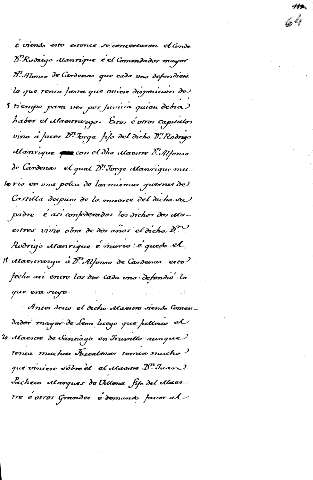 64
é viendo esto estonce se concertaron el Conde
Dn. Rodrigo Manrique é el Comendador mayor
Dn. Alonso de Cardenas que cada uno defendiese
lo que tenia fasta que oviese disposicion de
5 tiempo para ver por justicia quien debia
haber el Maestrazgo. Esto é otros capitulos
vino á jurar Dn. Jorge fijo del dicho Dn. Rodrigo
Manrique con el dho Maestre Dn. Alfonso
de Cardenas el qual Dn. Jorge Manrique mu
rio en una pelea de las mesmas guerras de
Castilla despues de la muerte del dicho su
padre é asi confederados los dichos dos Ma-
estres vivio obra de dos años el dicho Dn.
Rodrigo Manrique é murio é quedo el
Maestrazgo á Dn. Alfonso de Cardenas esto
fecho asi entre los dos cada uno defendió lo
que era suyo
Ante desto el dicho Maestre siendo Comen-
dador mayor de Leon luego que fallecio el
Maestre de Santiago en Truxillo aunque
tenia muchas Fortalezas temia mucho
que viniese sobre él el Maestre Dn. Juan
Pacheco Marques de Villena fijo del Maes-
tre é otros Grandes é demando favor al